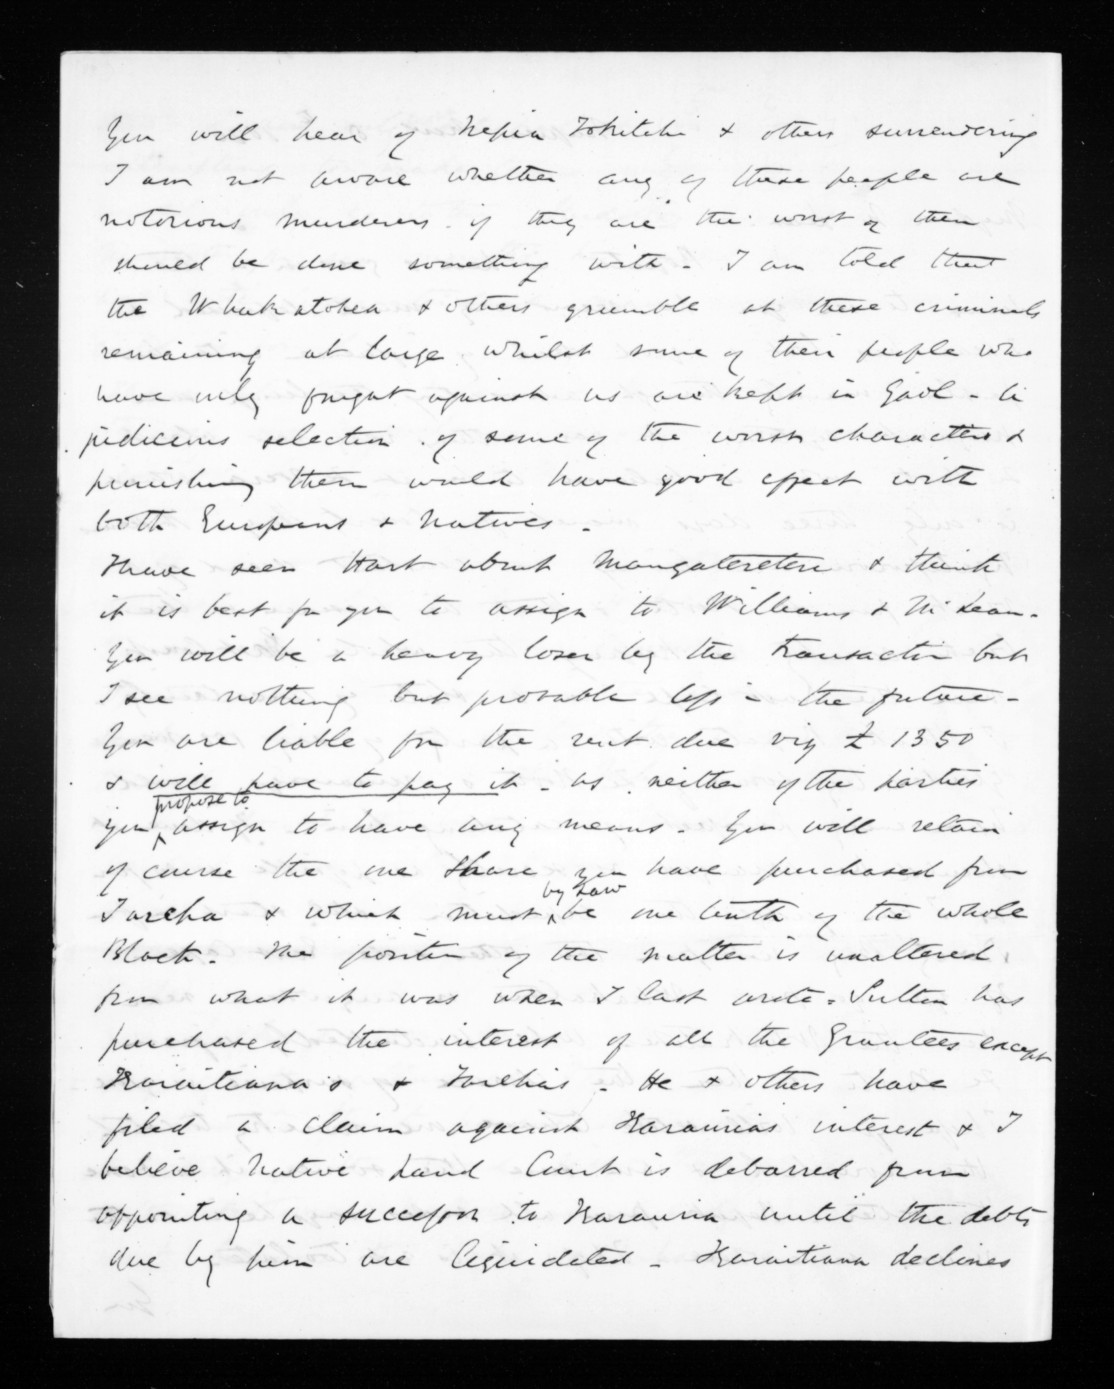 You will hear of Nepia Tokitahi & others surrendering
I am not aware whether any of these people are
notorious murderers. if they are the worst of them
should be done something with - I am told that
the Whakatohea & others grumble at these criminals
remaining at large whilst some of their people who
have only fought against us are kept in Gaol - A
judicious selection of some of the worst characters &
punishing them would have good effect with
both Europeans & Natives -
I have seen Hart about Mangateretere & think
it is best for you to assign to Williams & McLean -
You will be a heavy loser by the transaction but
I see nothing but probable loss in the future -
You are liable for the rent due viz £1350
& will have to pay it - as neither of the parties
you propose to assign to have any means - You will retain
of course the one Share you have purchased from
Tareha & which must by Law be one tenth of the whole
Block. The position of the matter is unaltered
from what it was when I last wrote - Sutton has
purchased the interest of all the Grantees except
Karaitiana's & Tareha's - He & others have
filed a claim against Karauria's interest & I
believe Native Land Court is debarred from
appointing a successor to Karauria until the debts
due by him are liquidated - Karaitiana declines